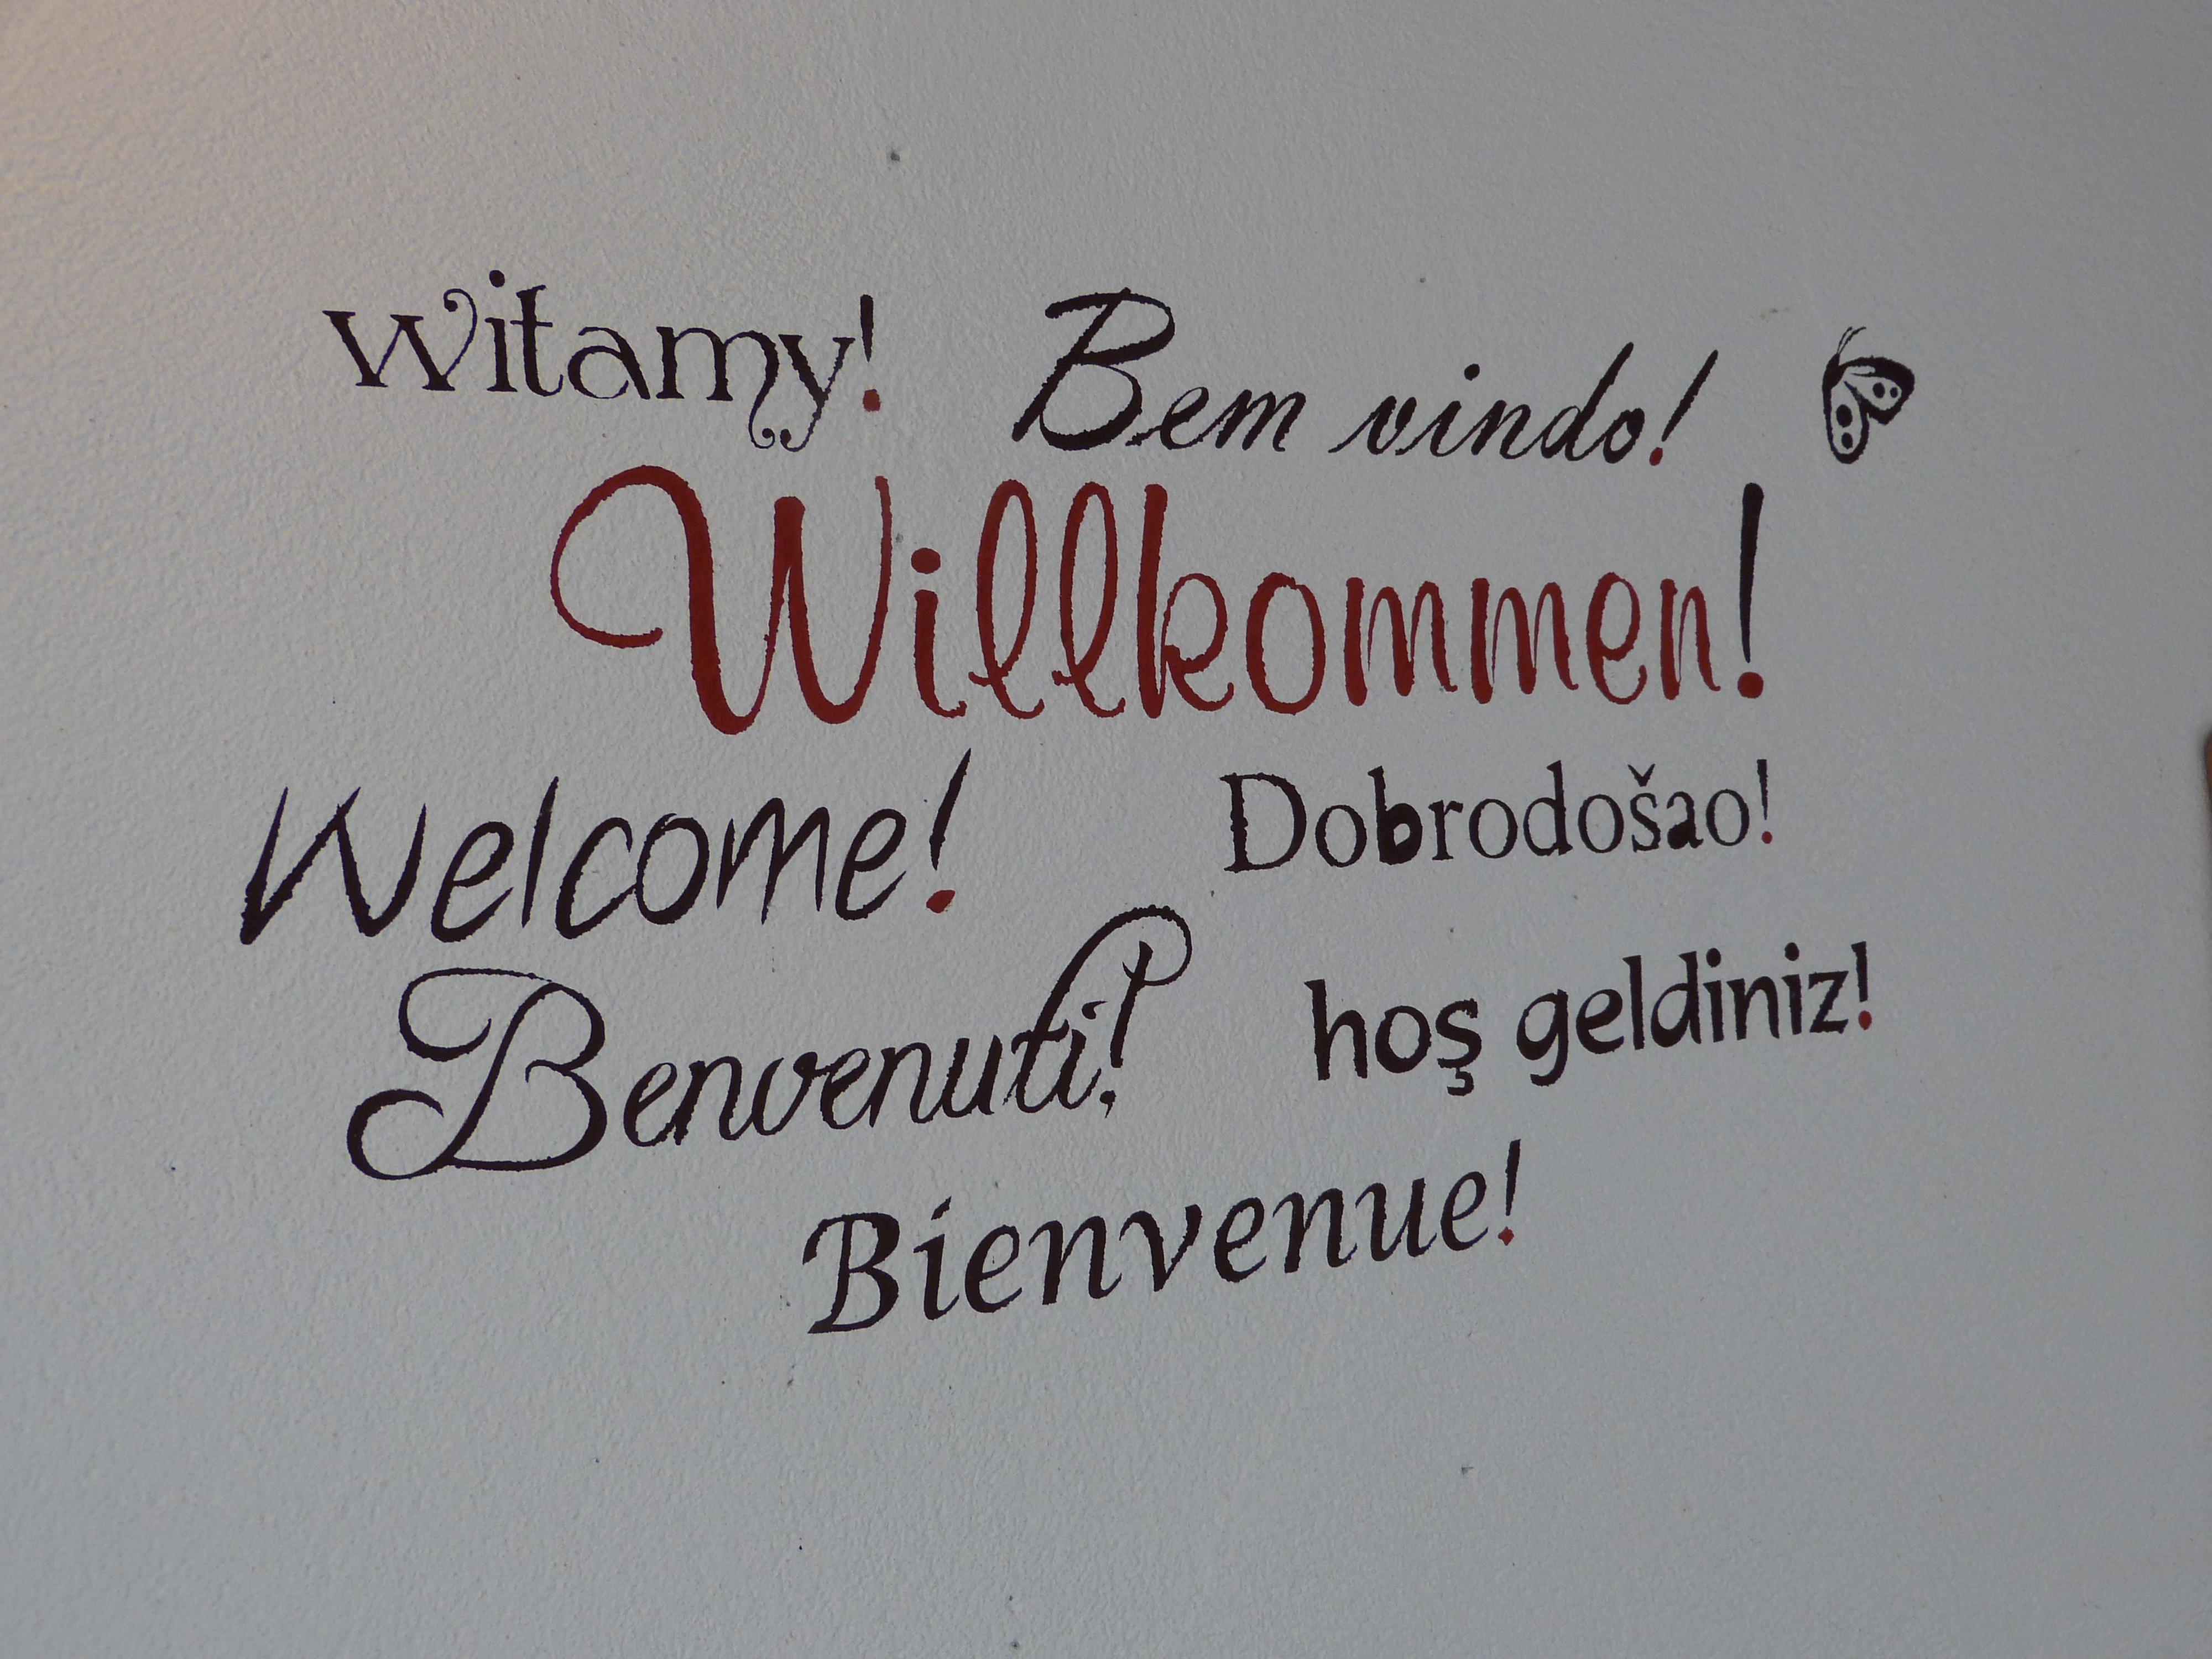 witamy! Bem vindo!
Willkommen!
Welcome! Dobrodošao!
Benvenuti! hoş geldiniz!
Bienvenue!